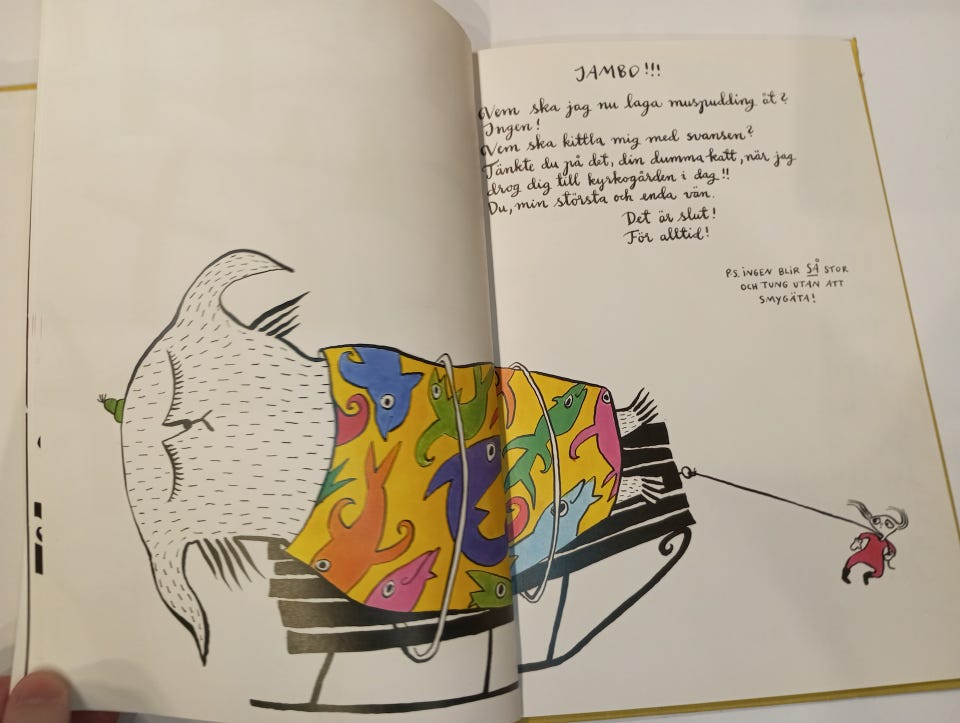 JAMBO!!!
Vem ska jag nu laga muspudding åt?
Ingen!
Vem ska kittla mig med svansen?
Tänkte du på det, din dumma katt, när jag
drog dig till kyrkogården i dag!!
Du, min största och enda vän.
Det är slut!
För alltid!
P.S. INGEN BLIR SÅ STOR
OCH TUNG UTAN ATT
SMYGÄTA!